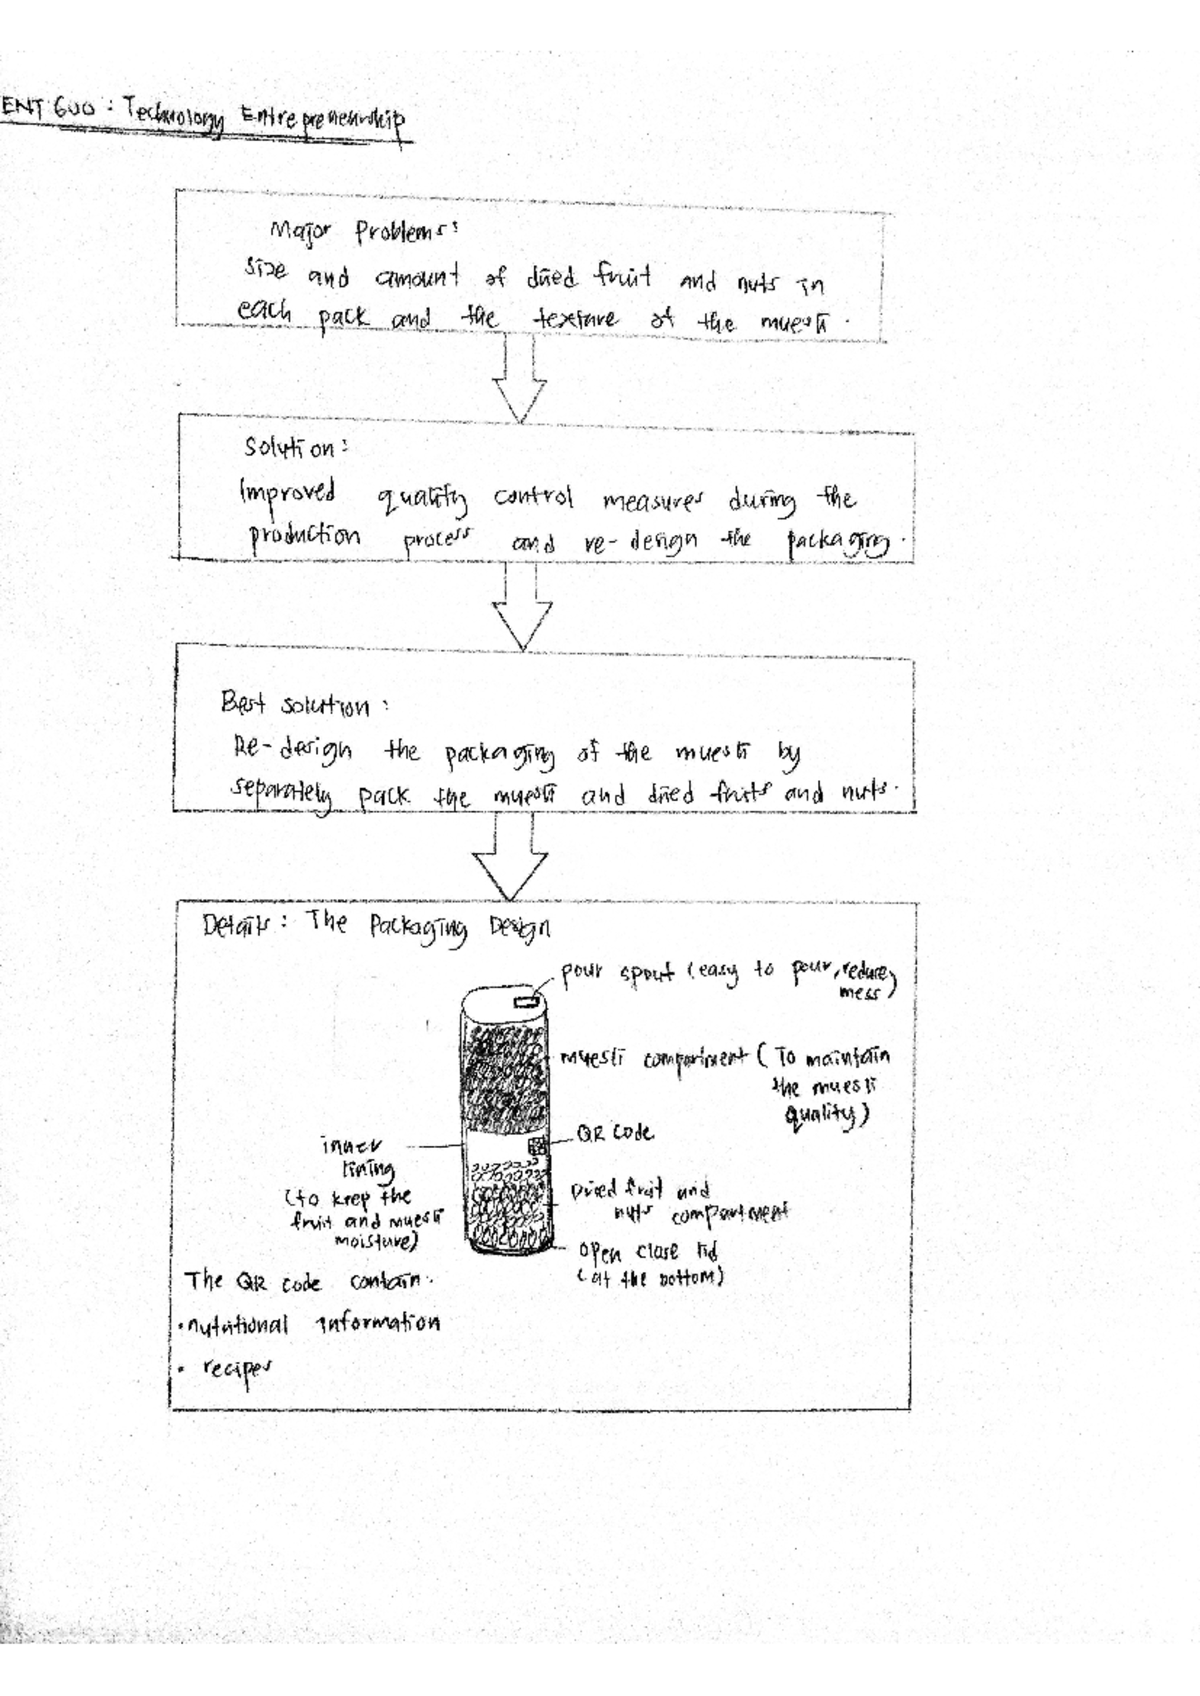 ENT 600 : Technology Entrepreneurship
Major Problems:
size and amount of dried fruit and nuts in
each pack and the texture of the muesli.
Solution:
Improved quality control measures during the
production process and re-design the packaging.
Best solution:
Re-design the packaging of the muesli by
separately pack the muesli and dried fruits and nuts.
Details: The Packaging Design
pour spout (easy to pour, reduce
mess)
muesli compartment (To maintain
the muesli
quality)
QR code
inner
lining
(to keep the
fruit and muesli
moisture)
Dried fruit and
nuts compartment
open close lid
(at the bottom)
The QR code contain:
• nutritional information
• recipes